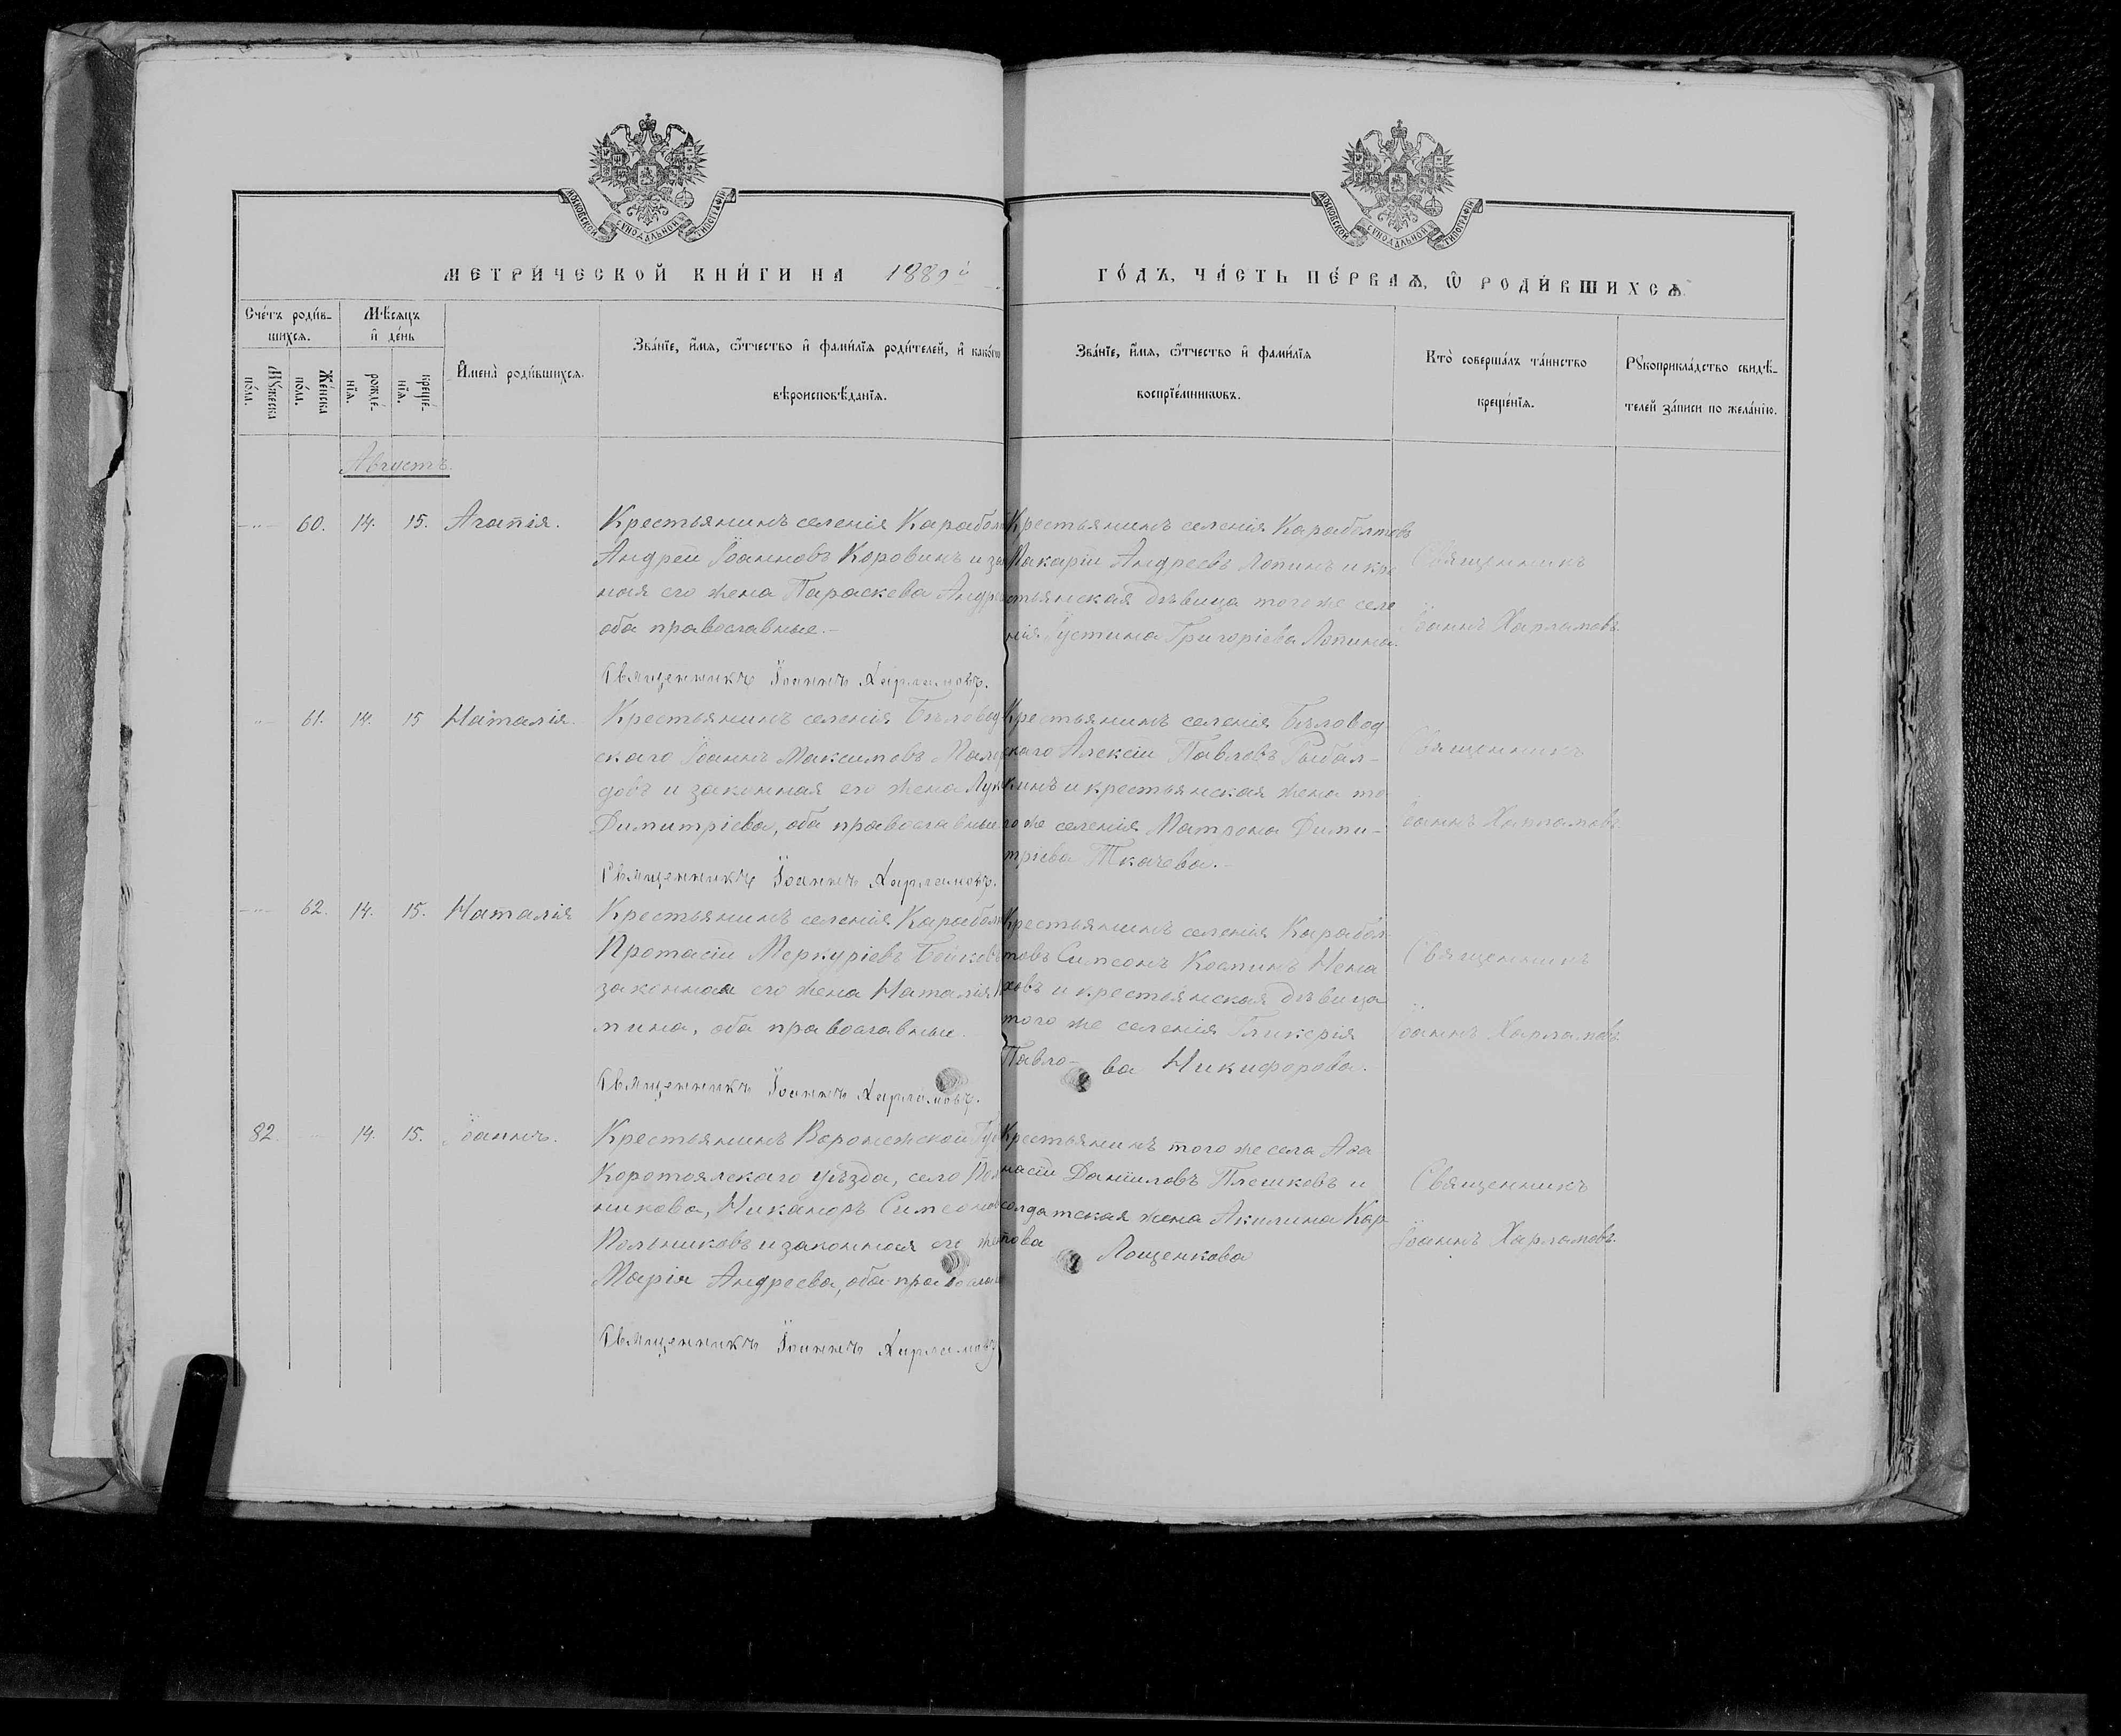 МОСКОВСКОЙ СѴНОДАЛЬНОЙ ТИПОГРАФІИ
МОСКОВСКОЙ СѴНОДАЛЬНОЙ ТИПОГРАФІИ
МЕТРИ́ЧЕСКОЙ КНИ́ГИ НА 1889й
ГО́ДЪ, ЧА́СТЬ ПЕ́РВАѦ, Ѡ҆ РОДИ́ВШИХСѦ
Сче́тъ роди́в-
шихсѧ.
Мѣ́сѧцъ
и҆ де́нь
Мꙋ́жеска
по́ла.
Же́нска
по́ла.
рожде́-
нїѧ.
креще́-
нїѧ.
И҆мена̀ роди́вшихсѧ.
Зва́нїе, и҆́мѧ, ѻ҆́тчество и҆ фами́лїѧ роди́телей, и҆ како́гѡ
вѣроисповѣ́данїѧ.
Зва́нїе, и҆́мѧ, ѻ҆́тчество и҆ фами́лїѧ
воспрїе́мникѡвъ.
Кто̀ соверша́лъ та́инство
креще́нїѧ.
Рꙋкоприкла́дство свидѣ́-
телей за́писи по жела́нїю.
Августъ.
60. 14. 15. Агапія.
Крестьянинъ селенія Карабол
Андрей Іоанновъ Коровинъ и за
ная его жена Параскева Андре
оба православные.-
Священникъ Іоаннъ Харламовъ.
Крестьянинъ селенія Караболтовъ
Макарій Андреевъ Лопинъ и кре
стьянская дѣвица того же селе
нія Іустина Григоріева Лопина.
Священникъ
Іоаннъ Харламовъ.
61. 14. 15 Наталія.
Крестьянинъ селенія Бѣловод
скаго Іоаннъ Максимовъ
довъ и законная его жена
Димитріева, оба православные
Священникъ Іоаннъ Харламовъ.
Крестьянинъ селенія Бѣловод
скаго Алексій Павловъ Рыбал-
кинъ и крестьянская жена то
го же селенія Матрона Дими-
тріева Ткачева.-
Священникъ
Іоаннъ Харламовъ.
62. 14. 15. Наталія
Крестьянинъ селенія Карабол
Протасій Меркуріевъ Бойковъ
законная его жена Наталія
мина, оба православные.
Священникъ Іоаннъ Харламовъ.
Крестьянинъ селенія Карабол
товъ Симеонъ Косминъ Нена
ховъ и крестьянская дѣвица
того же селенія Гликерія
Павло- ва Никифорова.
Священникъ
Іоаннъ Харламовъ.
82 14. 15. Іоаннъ.
Крестьянинъ Воронежской Гу
Коротоякскаго уѣзда, село
никова, Никаноръ Симеонов
Польниковъ и законная его жен
Марія Андреева, оба православ
Священникъ Іоаннъ Харламовъ
Крестьянинъ того же села Аѳа
насій Даніиловъ Плешковъ и
солдатская жена Акилина Кар
пова Лощенкова
Священникъ
Іоаннъ Харламовъ.